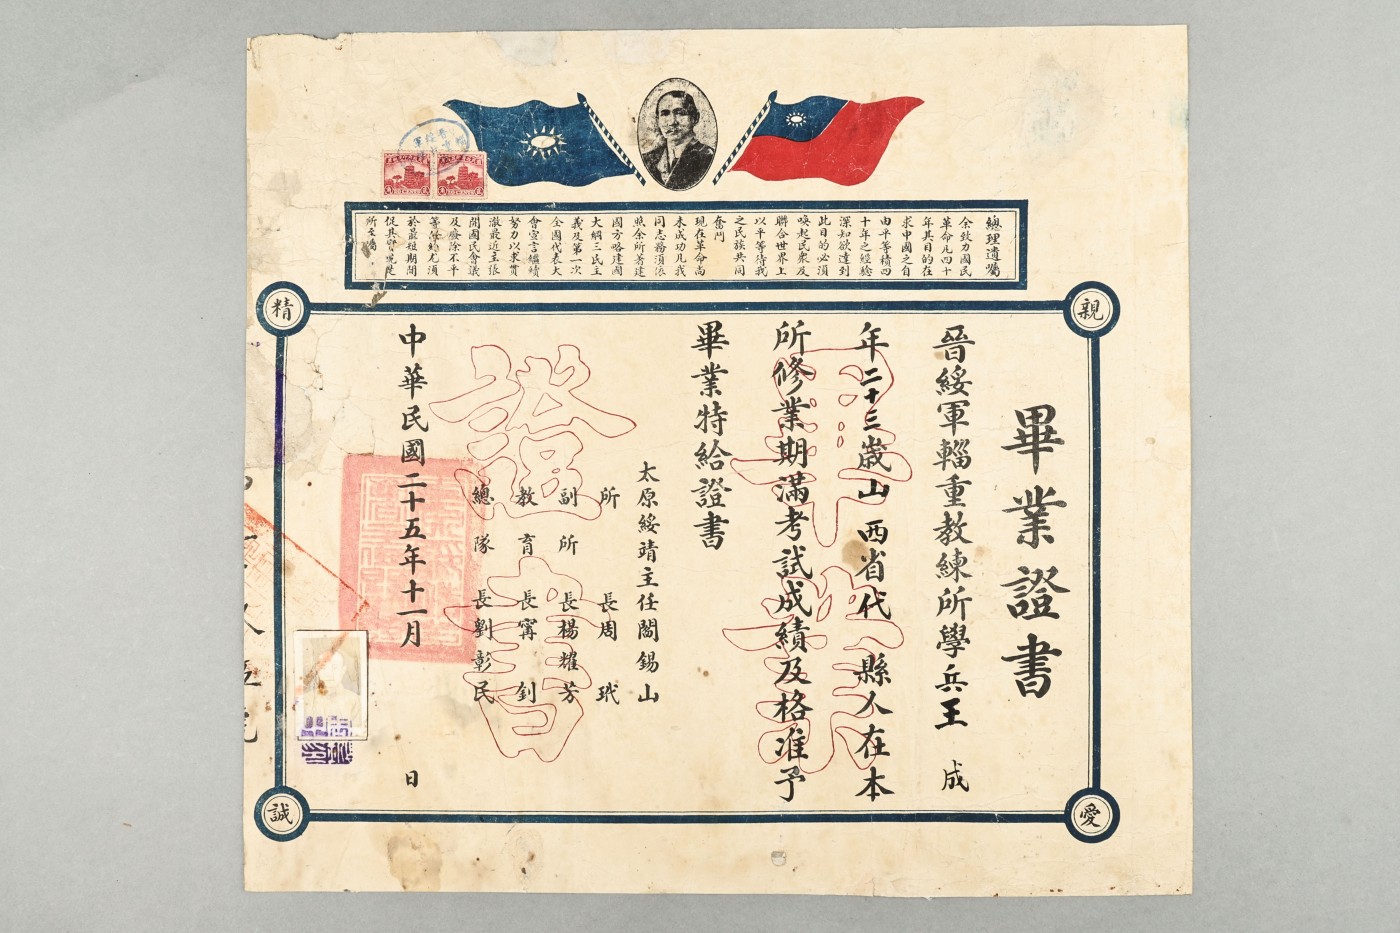 總理遺囑
余致力國民
革命凡四十
年其目的在
求中國之自
由平等積四
十年之經驗
深知欲達到
此目的必須
喚起民衆及
聯合世界上
以平等待我
之民族共同
奮鬥
現在革命尚
未成功凡我
同志務須依
照余所著建
國方略建國
大綱三民主
義及第一次
全國代表大
會宣言繼續
努力以求貫
澈最近主張
開國民會議
及廢除不平
等條約尤須
於最短期間
促其實現是
所至囑
親
愛
精
誠
畢業證書
晉綏軍輜重教練所學兵王成
年二十三歲山西省代縣人在本
所修業期滿考試成績及格准予
畢業特給證書
太原綏靖主任閻錫山
所長周玳
副所長楊耀芳
教育長甯釗
總隊長劉彰民
中華民國二十五年十一月 日
畢業
證書